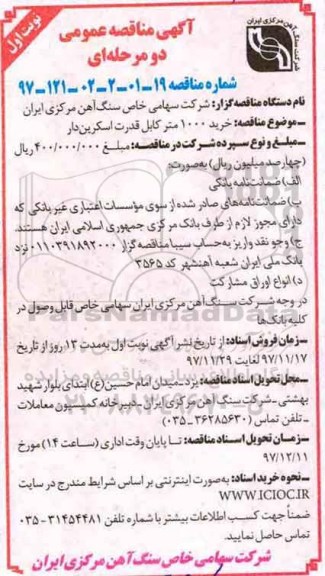 نوبت اول
شرکت سنگ آهن مرکزی ایران
آگهی مناقصه عمومی
دو مرحله‌ای
شماره مناقصه ۱۹-۰۱-۲-۰۲-۱۲۱-۹۷
نام دستگاه مناقصه‌گزار: شرکت سهامی خاص سنگ‌آهن مرکزی ایران
ـ موضوع مناقصه: خرید ۱۰۰۰ متر کابل قدرت اسکرین‌دار
ـ مبلغ و نوع سپرده شرکت در مناقصه: مبلغ ۴۰۰/۰۰۰/۰۰۰ ریال
(چهارصد میلیون ریال) به‌صورت:
الف) ضمانت‌نامه بانکی
ب) ضمانت‌نامه‌های صادر شده از سوی مؤسسات اعتباری غیر بانکی که
دارای مجوز لازم از طرف بانک مرکزی جمهوری اسلامی ایران هستند.
ج) وجو نقد واریز به‌حساب سیبا مناقصه‌گزار ۰۱۱۰۳۹۱۸۹۲۰۰۰ نزد
بانک ملی ایران شعبه آهنشهر کد ۳۵۶۵
د) انواع اوراق مشارکت
در وجه شرکت سنگ آهن مرکزی ایران سهامی خاص قابل وصول در
کلیه بانک‌ها
ـ زمان فروش اسناد: از تاریخ نشر آگهی نوبت اول به‌مدت ۱۳ روز از تاریخ
۹۷/۱۱/۱۷ لغایت ۹۷/۱۱/۲۹
ـ محل تحویل اسناد مناقصه: یزد-میدان امام حسین (ع) ابتدای بلوار شهید
بهشتی - شرکت سنگ آهن مرکزی ایران - دبیرخانه کمیسیون معاملات
- تلفن تماس (۳۶۲۸۵۶۳۰-۰۳۵)
ـ زمان تحویل اسناد مناقصه: تا پایان وقت اداری (ساعت ۱۴) مورخ
۹۷/۱۲/۱۱
ـ نحوه خرید اسناد: به‌صورت اینترنتی بر اساس شرایط مندرج در سایت
WWW.ICIOC.IR
ضمناً جهت کسب اطلاعات بیشتر با شماره تلفن ۳۱۴۵۴۴۸۱-۰۳۵
تماس حاصل نمایید.
شرکت سهامی خاص سنگ آهن مرکزی ایران